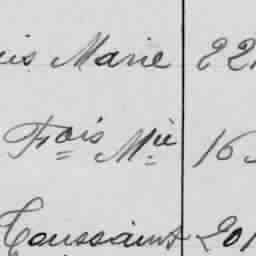 is Marie 22
Fois Mie 16
Toussaint 201